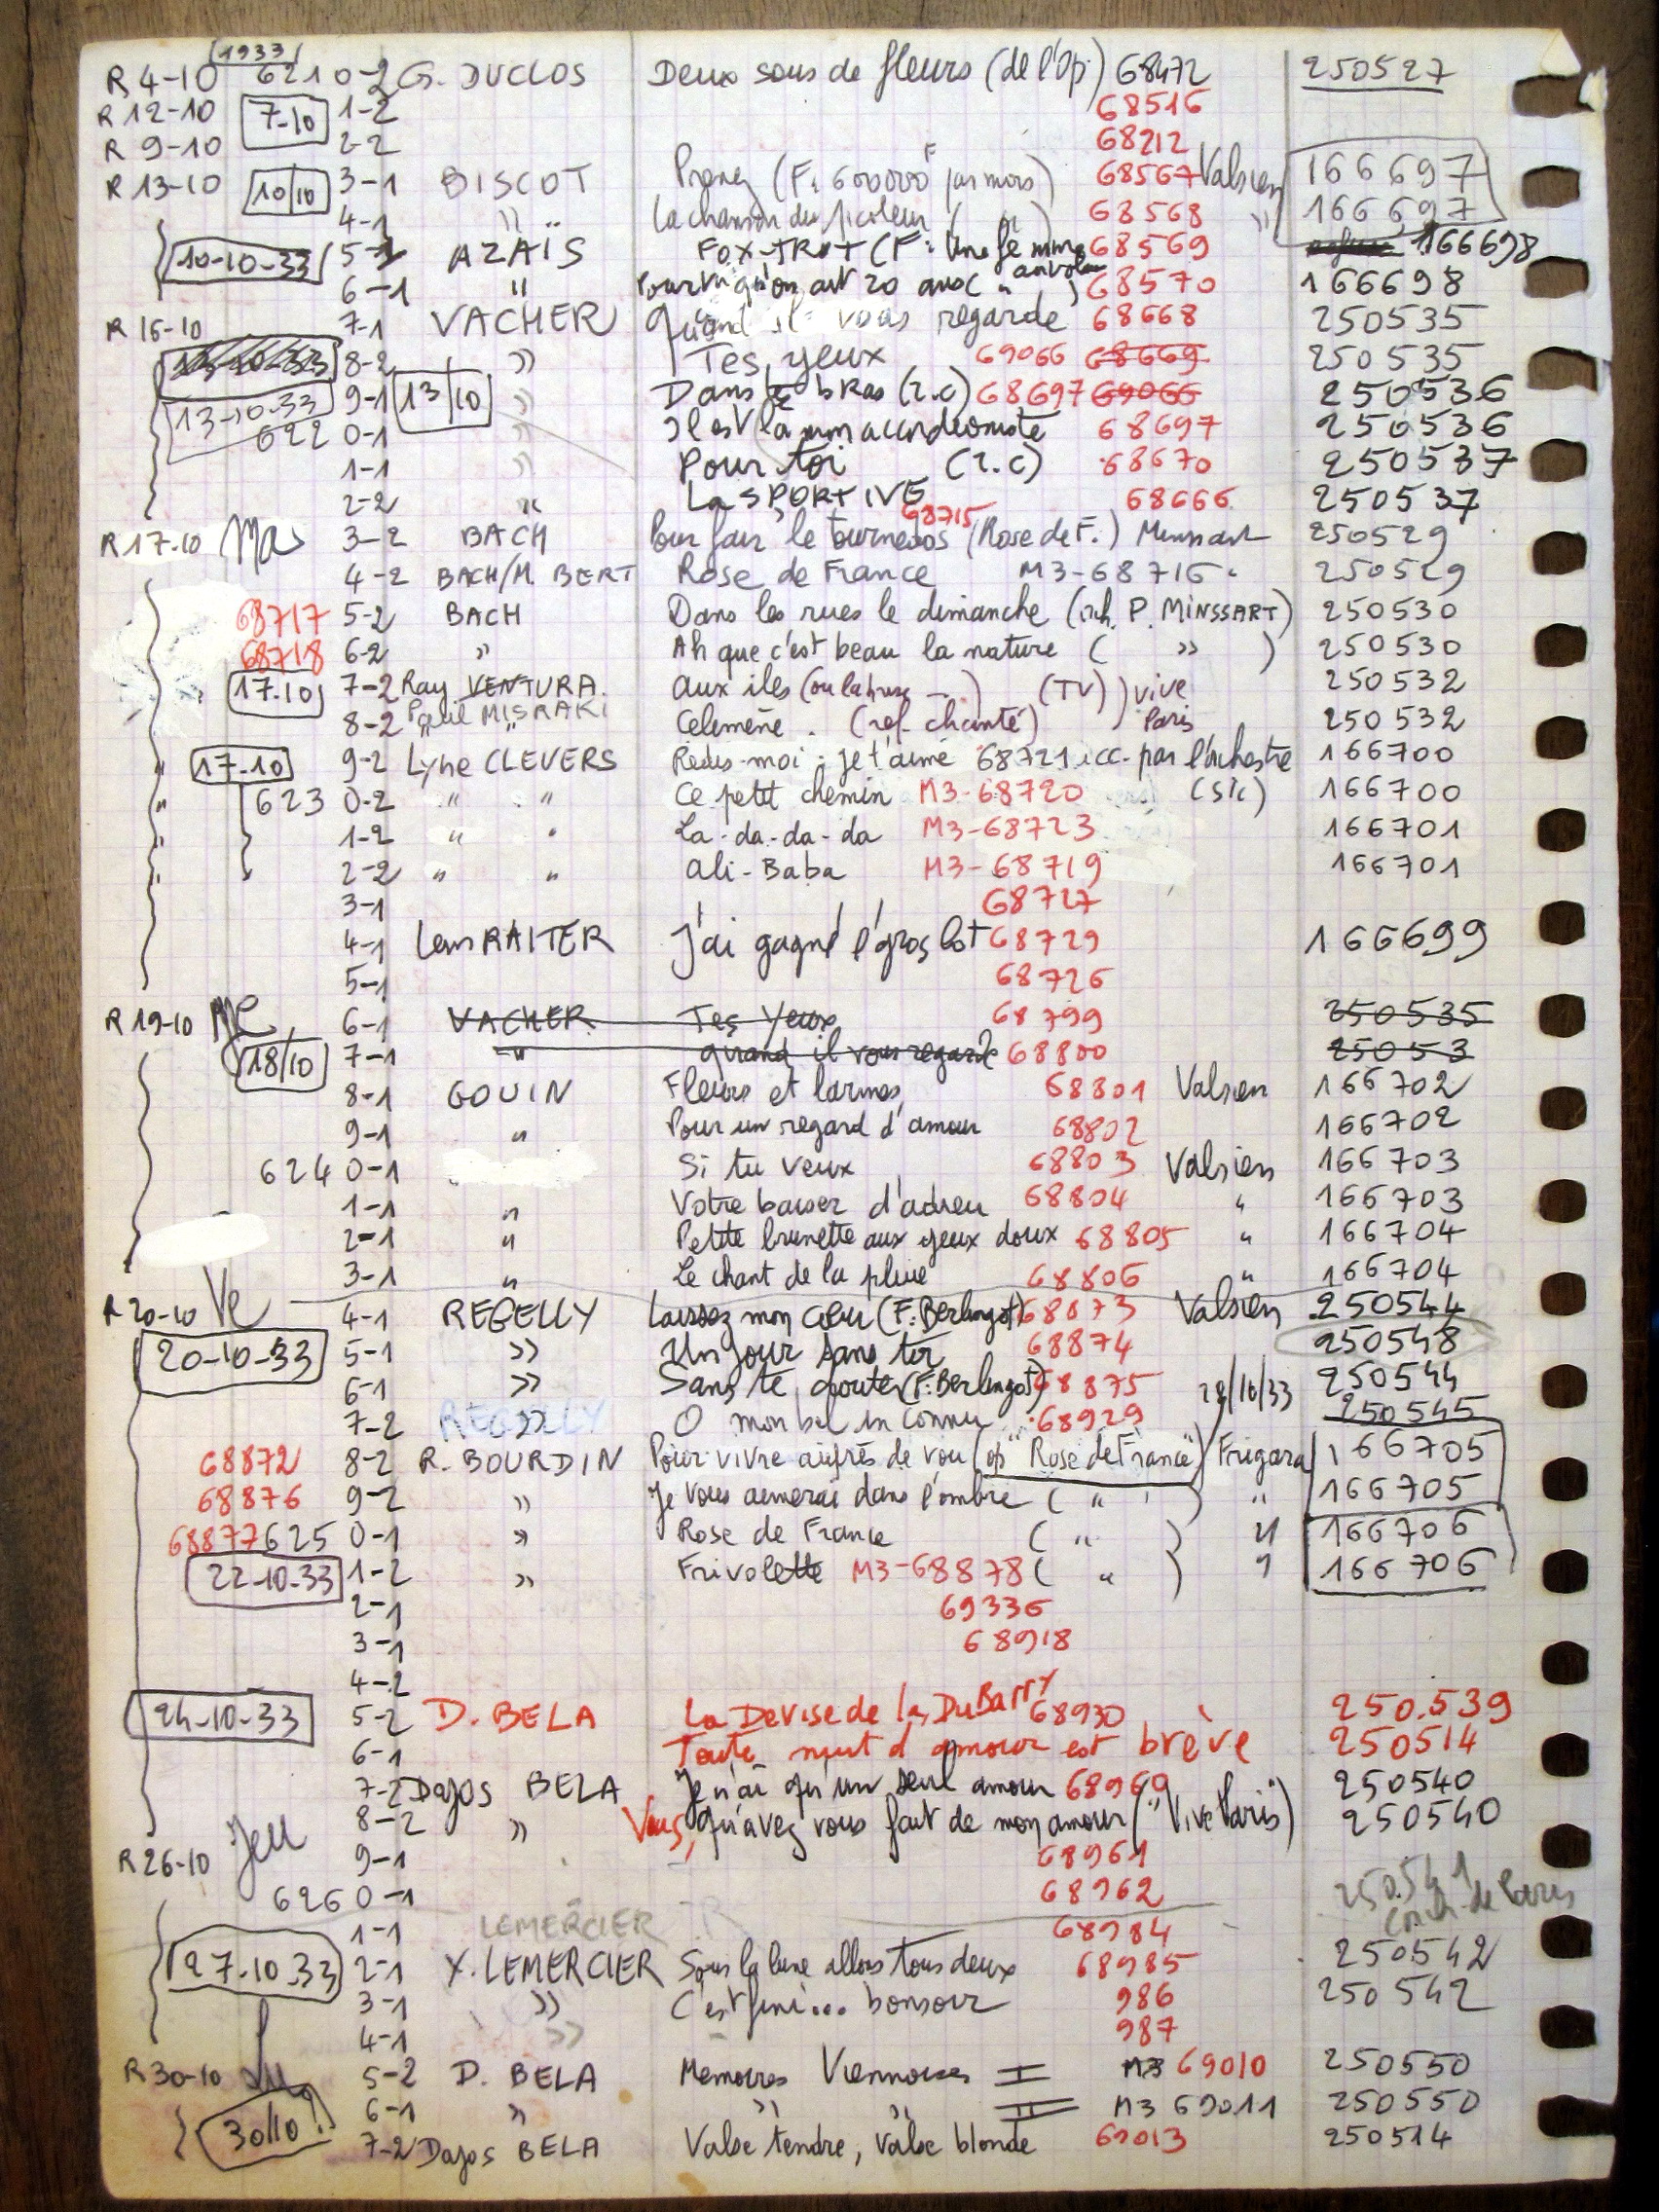 (1933)
R 4-10 621 0-2 G. DUCLOS Deux sous de fleurs (de l'Op.) 68472 250527
R 12-10 7-10 1-2 68516
R 9-10 2-2 68212
R 13-10 10/10 3-1 BISCOT Prenez (F: 600000F par mois) 68567 Valsien 166697
4-1 " " La chanson du picoleur ( " ) 68568 " 166697
10-10-33 5-1 AZAÏS FOX-TROT (F: Une femme 68569 166698
6-1 " Pourvu qu'on ait 20 ans ( " au volant ) 68570 166698
R 16-10 7-1 VACHER Quand il vous regarde 68668 250535
13-10-33 8-2 " Tes yeux 69066 68669 250535
13-10-33 9-1 13/10 " Dans tes bras (r.c) 68697 69066 250536
622 0-1 " Il est là mon accordéoniste 68697 250536
1-1 " Pour toi (r.c) 68670 250537
2-2 " La SPORTIVE 68666 250537
R 17-10 Mar 3-2 BACH Pour fair' le tournedos 68715 (Rose de F.) Minssart 250529
4-2 BACH/M. BERT Rose de France M3-68716 250529
68717 5-2 BACH Dans les rues le dimanche (orch. P. MINSSART) 250530
68718 6-2 " Ah que c'est beau la nature ( " ) 250530
17.10 7-2 Ray VENTURA. Aux iles (ou la (TV) ) vive 250532
8-2 Paul MISRAKI " Celemène . (ref. chanté) Paris 250532
" 17.10 9-2 Lyne CLEVERS Redis-moi : je t'aime 68721 acc. par l'orchestre 166700
" 623 0-2 " " Ce petit chemin M3-68720 (sic) 166700
" 1-2 " " La-da-da-da M3-68723 166701
" 2-2 " " Ali-Baba M3-68719 166701
3-1 68727
4-1 RAITER J'ai gagné l'gros lot 68729 166699
5-1 68726
R 19-10 Je 6-1 VACHER Tes Yeux 68799 250535
18/10 7-1 " quand il vous regarde 68800 25053
8-1 GOUIN Fleurs et larmes 68801 Valsien 166702
9-1 " Pour un regard d'amour 68802 166702
624 0-1 Si tu veux 68803 Valsien 166703
1-1 " Votre baiser d'adieu 68804 " 166703
2-1 " Petite brunette aux yeux doux 68805 " 166704
3-1 " Le chant de la pluie 68806 " 166704
R 20-10 Ve 4-1 REGELLY Laissez mon cœur (F: Berlingot) 68873 Valsien 250544
20-10-33 5-1 " Un jour sans toi 68874 250548
6-1 " Sans te douter (F: Berlingot) 68875 28/10/33 250544
7-2 REGELLY " O mon bel inconnu 68929 250545
68872 8-2 R. BOURDIN Pour vivre auprès de vou (op "Rose de France") Frigara 166705
68876 9-2 " Je vous aimerai dans l'ombre ( " ) " 166705
68877 625 0-1 " Rose de France ( " ) " 166706
22-10-33 1-2 " Frivolette M3-68878 ( " ) " 166706
2-1 69336
3-1 68918
4-2
24-10-33 5-2 D. BELA La Devise de la DuBarry 68930 250.539
6-1 Toute nuit d'amour est brève 250514
7-2 Dajos BELA Je n'ai qu'un seul amour 68960 250540
8-2 " Vous, qu'avez vous fait de mon amour ("Vive Paris") 250540
R 26-10 Jeu 9-1 68961
626 0-1 68962 250541 de Paris
1-1 LEMERCIER 68984
27.10.33 2-1 X. LEMERCIER Sous la lune allons tous deux 68985 250542
3-1 " C'est fini... bonsoir 986 250542
4-1 " 987
R 30-10 Lu 5-2 D. BELA Memoires Viennoises I M3 69010 250550
30/10 6-1 " " " II M3 69011 250550
7-2 Dajos BELA Valse tendre, valse blonde 69013 250514